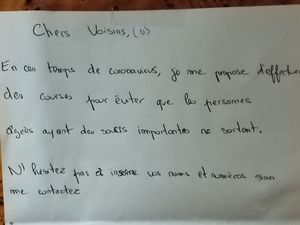 Chers Voisins, (o)
En ces temps de coronavirus, je me propose d'effectuer
des courses pour éviter que les personnes
âgées ayant des soucis importantes ne sortent.
N'hesitez pas à inscrire vos noms et numéros sinon
me contactez